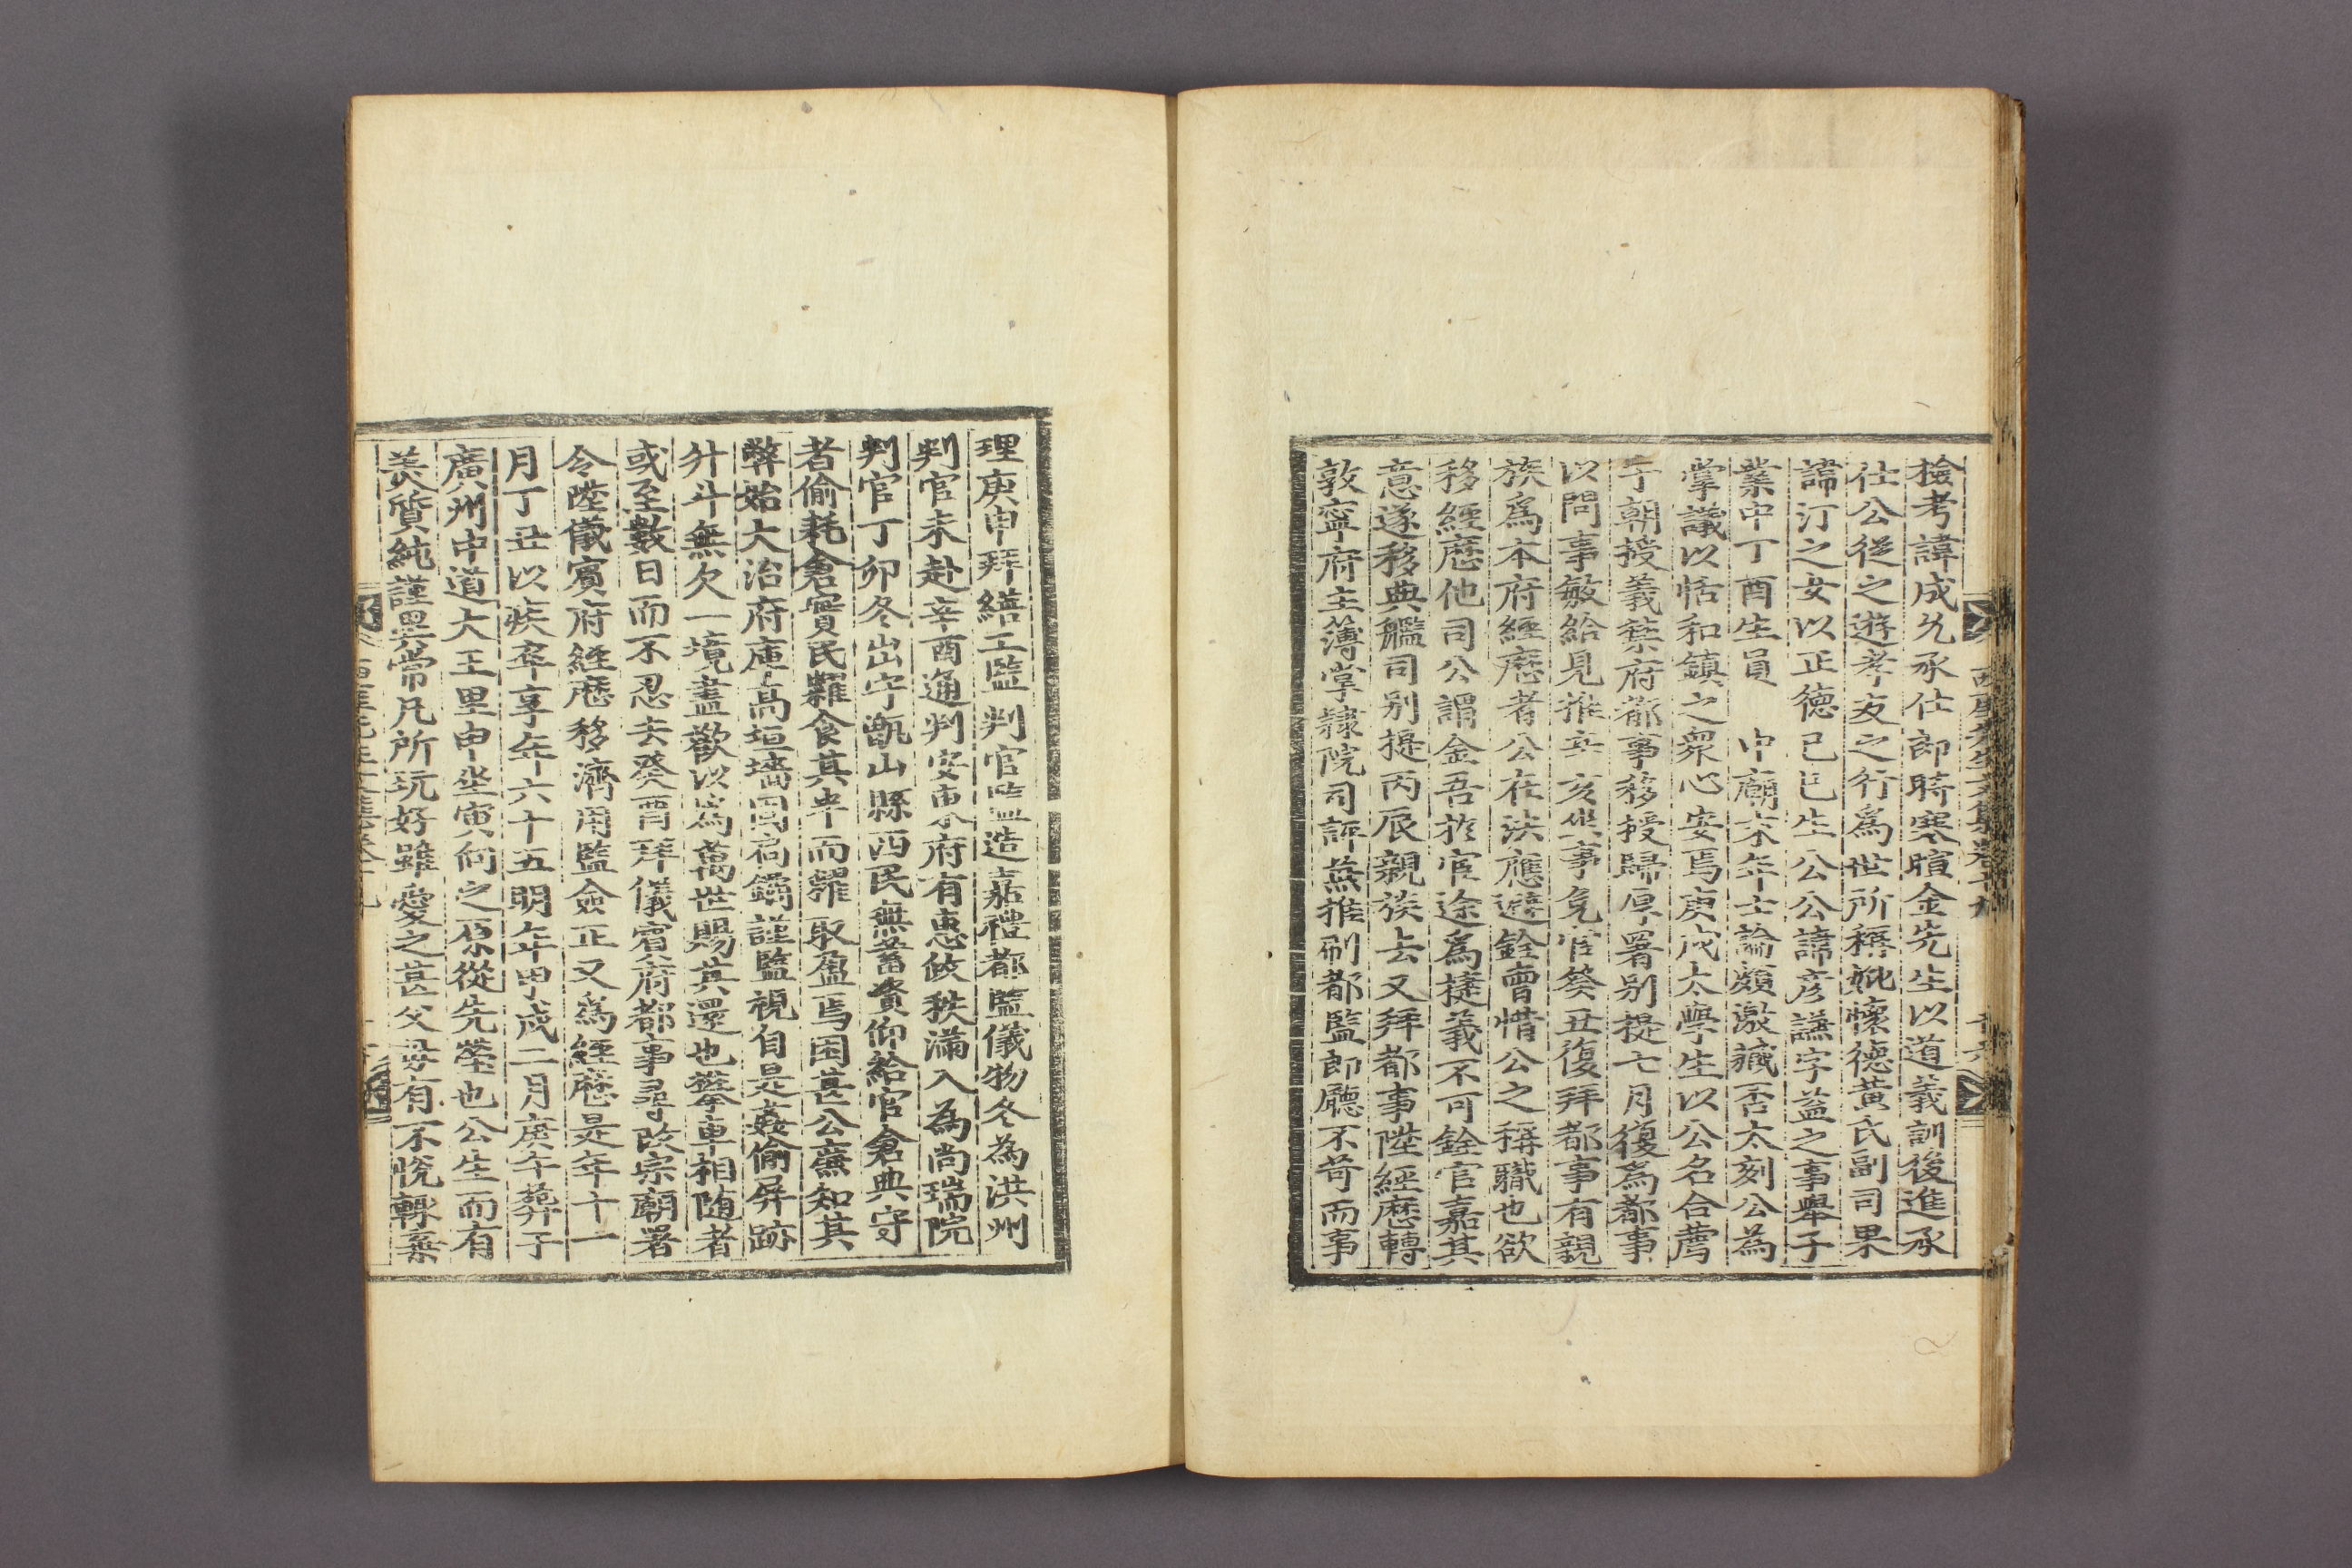 檢考諱成允承仕郎時寒暄金先生以道義訓後進承
仕公從之遊孝友之行爲世所稱妣懷德黃氏副司果
諱汀之女以正德己巳生公公諱彦謙字益之事擧子
業中丁酉生員 中廟末年士論頗激藏否太刻公為
掌議以恬和鎮之衆心安焉庚戌太學生以公名合薦
于朝授義禁府都事移授歸厚署別提七月復爲都事
以問事敏給見推辛亥坐事免官癸丑復拜都事有親
族爲本府經歷者公在法應避銓曹惜公之稱職也欲
移經歷他司公謂金吾於宦途爲捷義不可銓官嘉其
意遂移典艦司別提丙辰親族去又拜都事陞經歷轉
敦寧府主薄掌隷院司評兼推刷都監郎廳不苛而事
西厓先生文集卷十九 十六
理庚申拜繕工監判官監造嘉禮都監儀物冬為洪州
判官未赴辛酉通判安東府有惠政秩滿入為尚瑞院
判官丁卯冬出守甑山縣西民無蓄資仰給官倉典守
者偷耗倉實民糴食其半而糶取盈焉困甚公廉知其
弊始大治府庫高垣墻固扃鐍謹監視自是姦偷屏跡
升斗無欠一境盡歡以為萬世賜其還也攀車相随者
或至數日而不忍去癸酉拜儀賓府都事尋改宗廟署
令陞儀賓府經歷移濟用監僉正又為經歷是年十一
月丁丑以疾卒享年六十五明年甲戌二月庚午葬于
廣州中道大王里申坐寅向之原從先塋也公生而有
美質純謹異常凡所玩好雖愛之甚父母有不悅輒棄